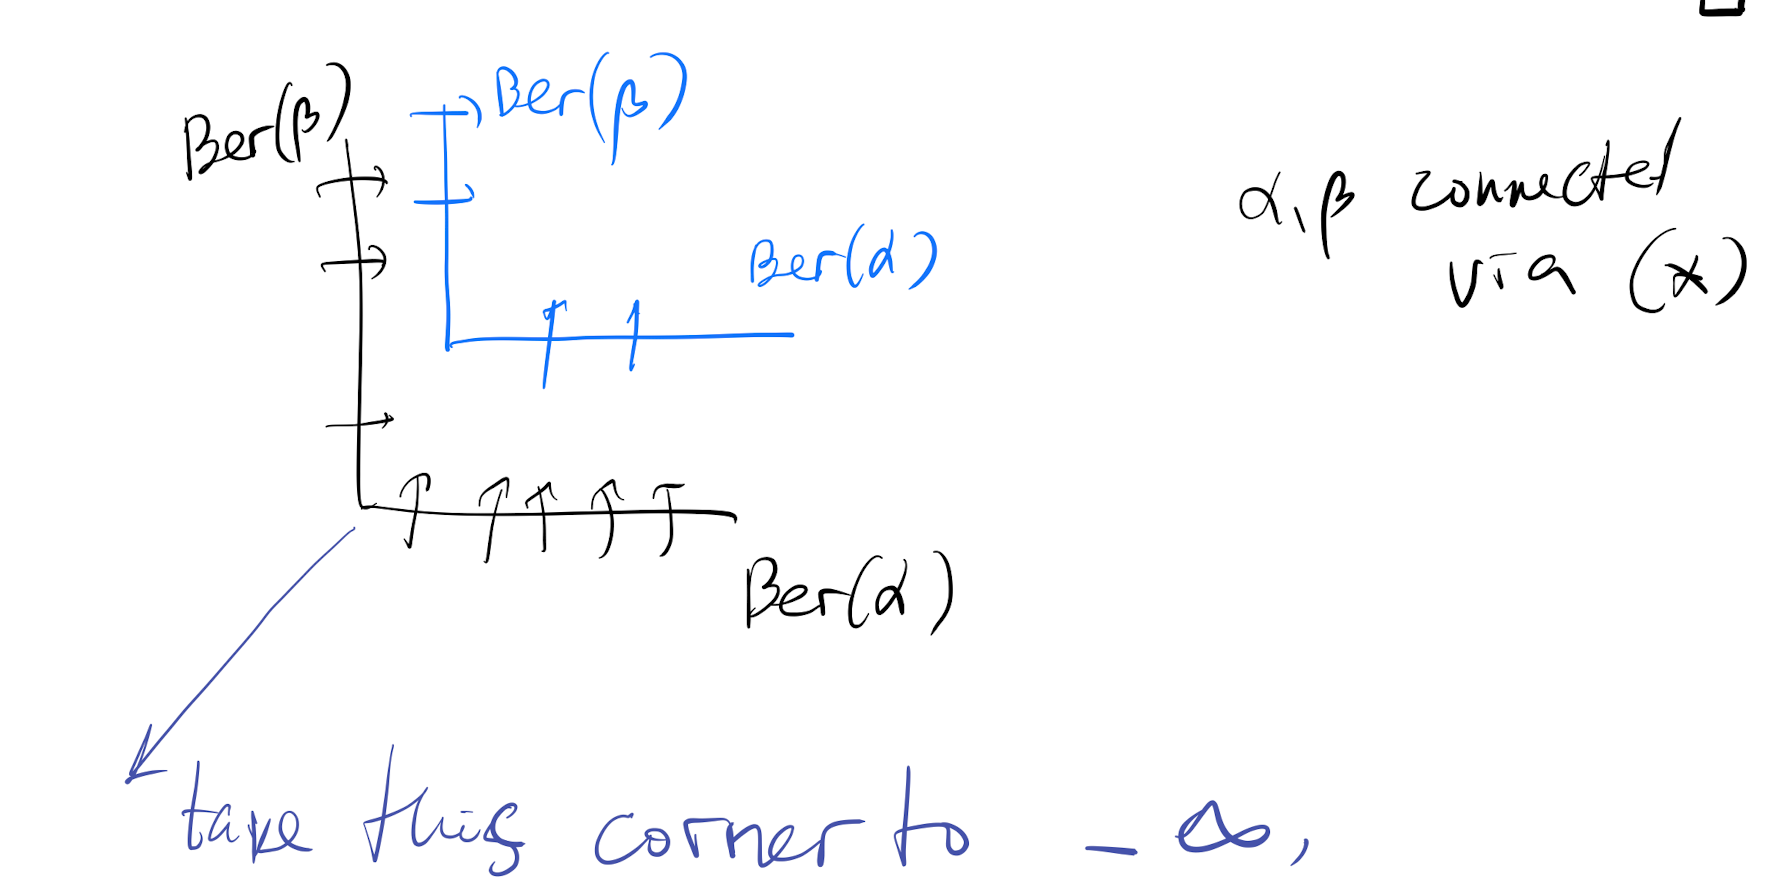 Ber(β)
Ber(β)
α, β connected
via (*)
Ber(α)
Ber(α)
take this corner to - ∞,